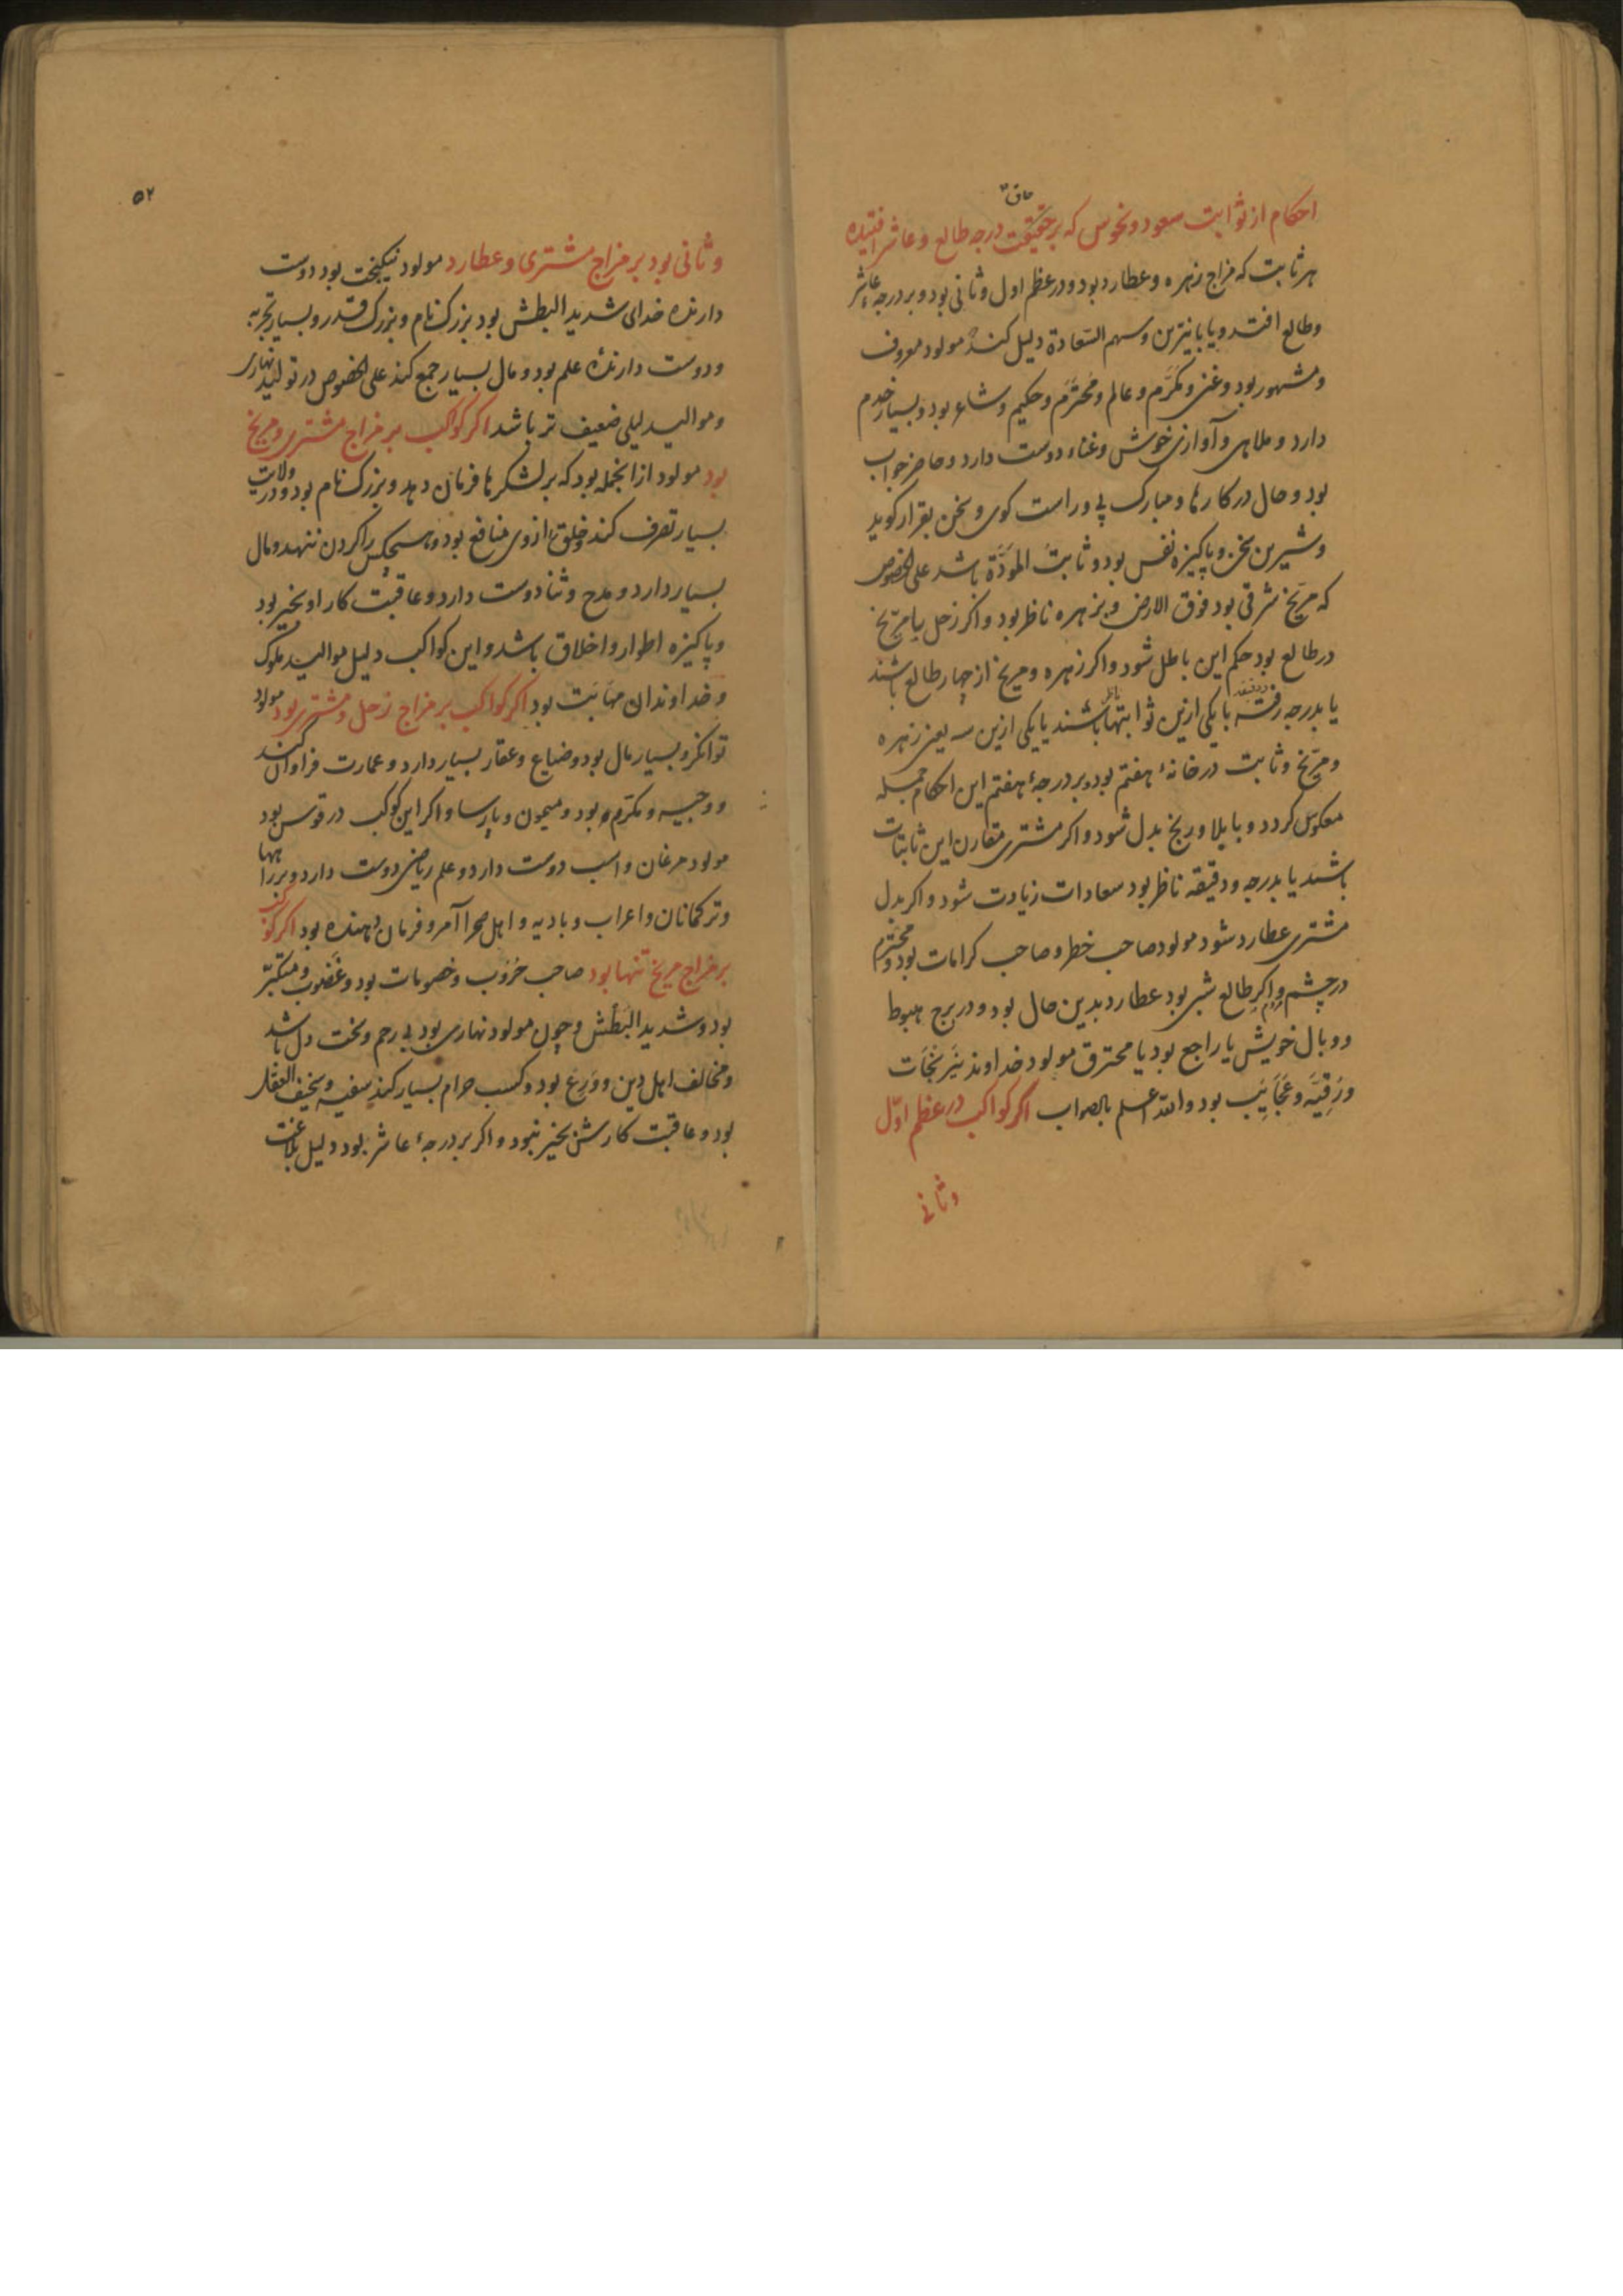 حاق
احکام از ثوابت سعود و نحوس که بر حقیقت درجه طالع و عاشر افتیده
هر ثابت که مزاج زهره و عطارد بود و در عظم اول و ثانی بود و بر درجه عاشر
و طالع افتد و یا با نیرین و سهم السّعادة دلیل کند مولود معروف
و مشهور بود و غنی و مکرّم و عالم و محترَم و حکیم و شاعر بود و بسیار خدم
دارد و ملاهی و آوازی خوش و غناء دوست دارد و حاضر جواب
بود و حال در کارها و مبارک پی و راست کوی و سخن بقرار کوید
و شیرین سخن و پاکیزه نفس بود و ثابتُ المَوَدَّة باشد علی الخصوص
که مریخ شرقی بود فوق الارض و بزهره ناظر بود و اکر زحل یا مریخ
در طالع بود حکم این باطل شود و اکر زهره و مریخ از چهار طالع باشند
یا بدرجه و دقیقه با یکی ازین ثوابتها باشند یا یکی ازین سه یعنی زهره
و مریخ و ثابت در خانهٔ هفتم بود و بر درجهٔ هفتم این احکام جمله
معکوس کردد و با بلا و رنج بدل شود و اکر مشتری مقارن این ثابتات
باشند یا بدرجه و دقیقه ناظر بود سعادات زیادت شود و اکر بدل
مشتری عطارد شود مولود صاحب خطر و صاحب کرامات بود و محترم
در چشم مردم و اکر طالع شبی بود عطارد بدین حال بود و در برج هبوط
و وبال خویش یا راجع بود یا محترق مولود خداوند نیرنجات
و رَقِیَّه و عَجَایَب بود والله اعلم بالصواب اکر کواکب در عظم اوّل
و ثانی
۵۲
و ثانی بود بر مزاج مشتری و عطارد مولود نیکبخت بود دوست
دارنده خدای شدید البطش بود بزرک نام و بزرک قدر و بسیار تجربه
و دوست دارندهٔ علم بود و مال بسیار جمع کند علی الخصوص در تولید نهاری
و موالید لیلی ضعیف تر باشد اکر کواکب بر مزاج مشتری و مریخ
بود مولود از انجمله بود که بر لشکرها فرمان دهد و بزرک نام بود و در ولایت
بسیار تصرف کند و خلق را از وی منافع بود و هیچکس را کردن ننهد و مال
بسیار دارد و مدح و ثنا دوست دارد و عاقبت کار او بخیر بود
و پاکیزه اطوار و اخلاق باشد و این کواکب دلیل موالید ملوک
و خداوندان مهابت بود اکر کواکب بر مزاج زحل و مشتری بود مولود
توانکر و بسیار مال بود و ضیاع و عقار بسیار دارد و عمارت فراوان کند
و وجیه و مکرّم بود و میمون و پارسا و اکر این کوکب در قوس بود
مولود مرغان و اسب دوست دارد و علم ریاضی دوست دارد و بر راهها
و ترکمانان و اعراب و بادیه و اهل صحرا آمر و فرمان دهنده بود اکر کوکب
بر مزاج مریخ تنها بود صاحب حُروب و خصومات بود و غَضوب و متکبّر
بود و شدید البَطْش و چون مولود نهاری بود بی رحم و سخت دل باشد
و مخالف اهل دین و وَرِع بود و کسب حرام بسیار کند سفیه و سخیف العقل
بود و عاقبت کارش بخیر نبود و اکر بر درجهٔ عاشر بود دلیل بلاغت